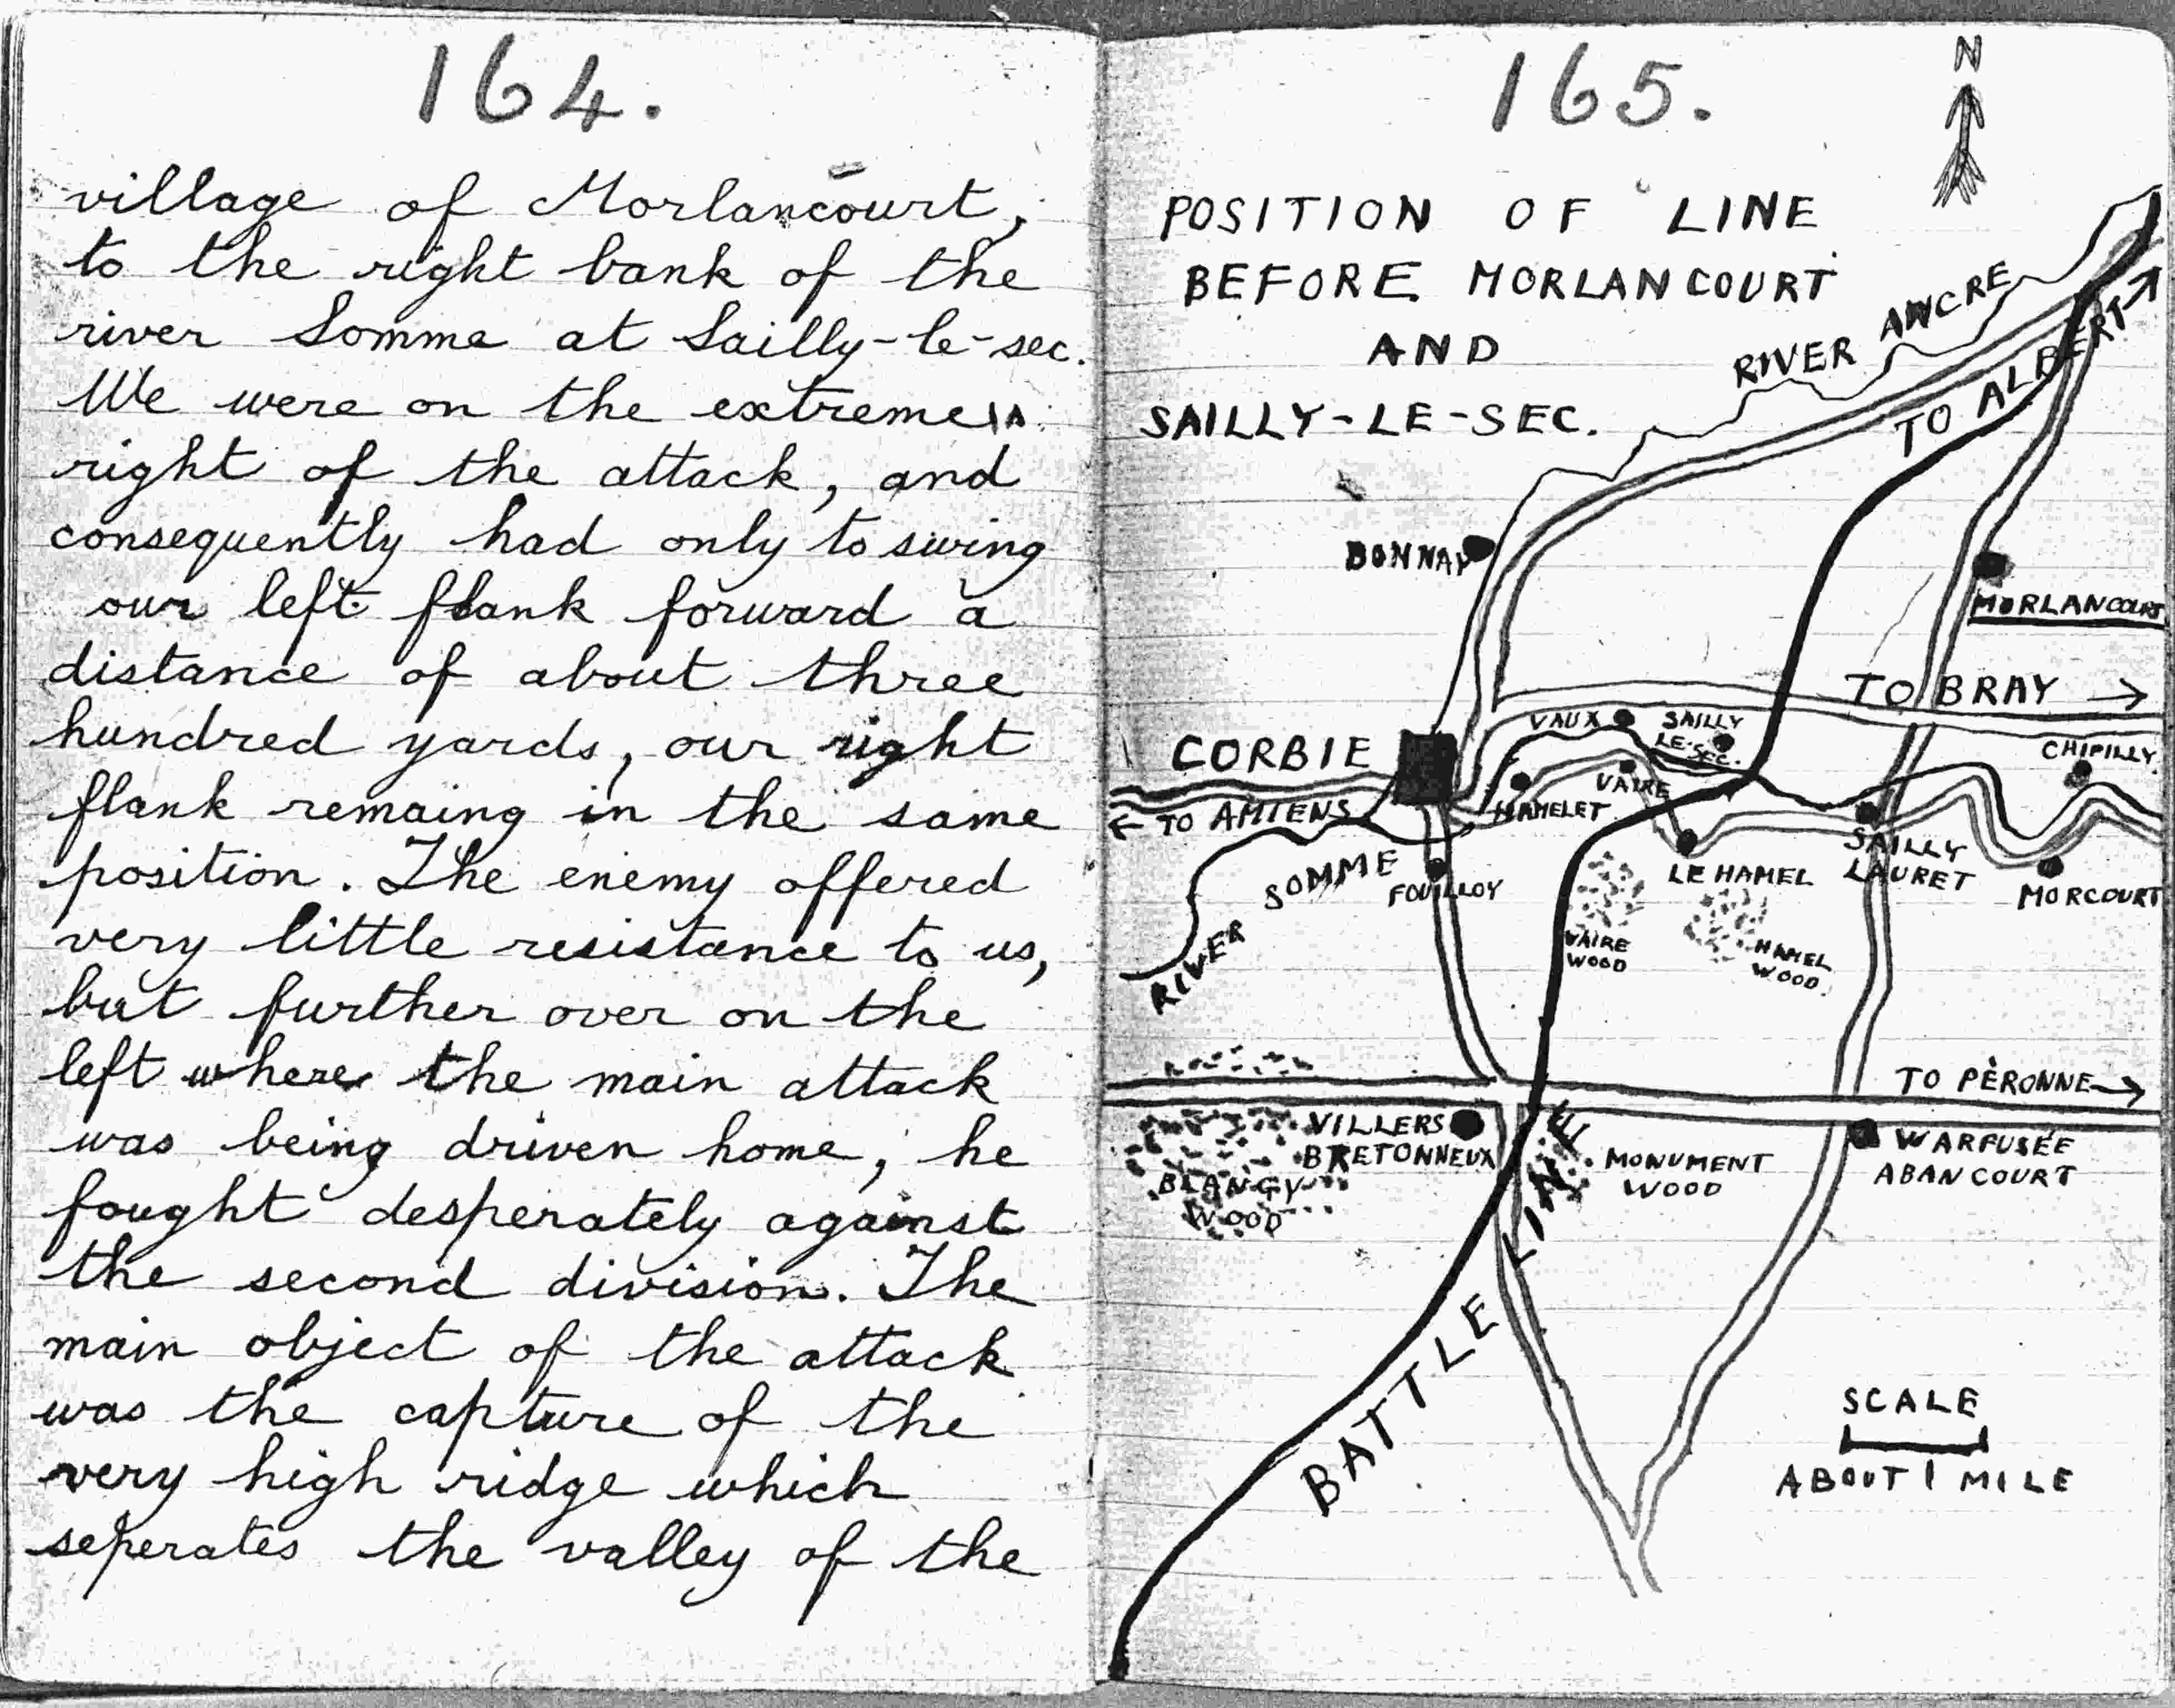 164.
village of Morlancourt,
to the right bank of the
river Somme at Sailly-le-sec.
We were on the extreme
right of the attack, and
consequently had only to swing
our left flank forward a
distance of about three
hundred yards, our right
flank remaing in the same
position. The enemy offered
very little resistance to us,
but further over on the
left where the main attack
was being driven home, he
fought desperately against
the second division. The
main object of the attack
was the capture of the
very high ridge which
seperates the valley of the
165.
N
POSITION OF LINE
BEFORE MORLANCOURT
AND
SAILLY-LE-SEC.
RIVER ANCRE
TO ALBERT
BONNAY
MORLANCOURT
TO BRAY
VAUX
SAILLY
LE-SEC.
CORBIE
CHIPILLY.
VAIRE
HAMELET
TO AMIENS
SAILLY
LAURET
LE HAMEL
MORCOURT
RIVER SOMME
FOUILLOY
VAIRE
WOOD
HAMEL
WOOD.
TO PÈRONNE
VILLERS
BRETONNEUX
BLANGY
WOOD
MONUMENT
WOOD
WARFUSÉE
ABANCOURT
BATTLE LINE
SCALE
ABOUT 1 MILE